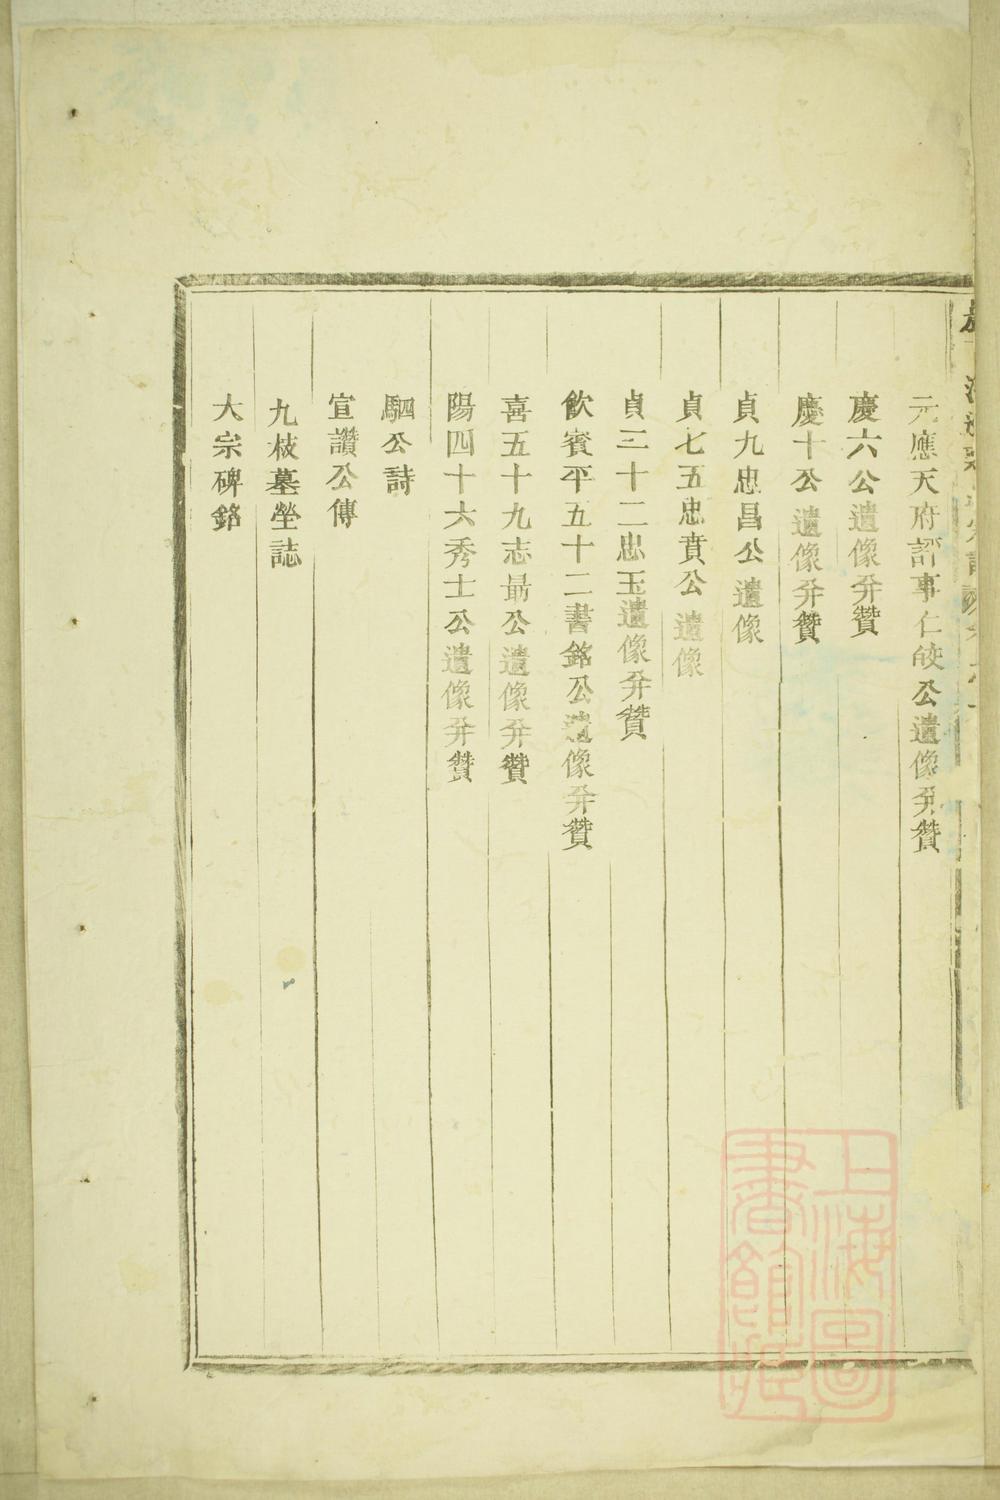 元應天府評事仁皎公遺像并贊
慶六公遺像并贊
慶十公遺像并贊
貞九忠昌公遺像
貞七五忠賁公遺像
貞三十二忠玉遺像并贊
飲賓平五十二書銘公遺像并贊
喜五十九志最公遺像并贊
陽四十六秀士公遺像并贊
駟公詩
宣讚公傳
九枝墓塋誌
大宗碑銘
上海圖
書館藏